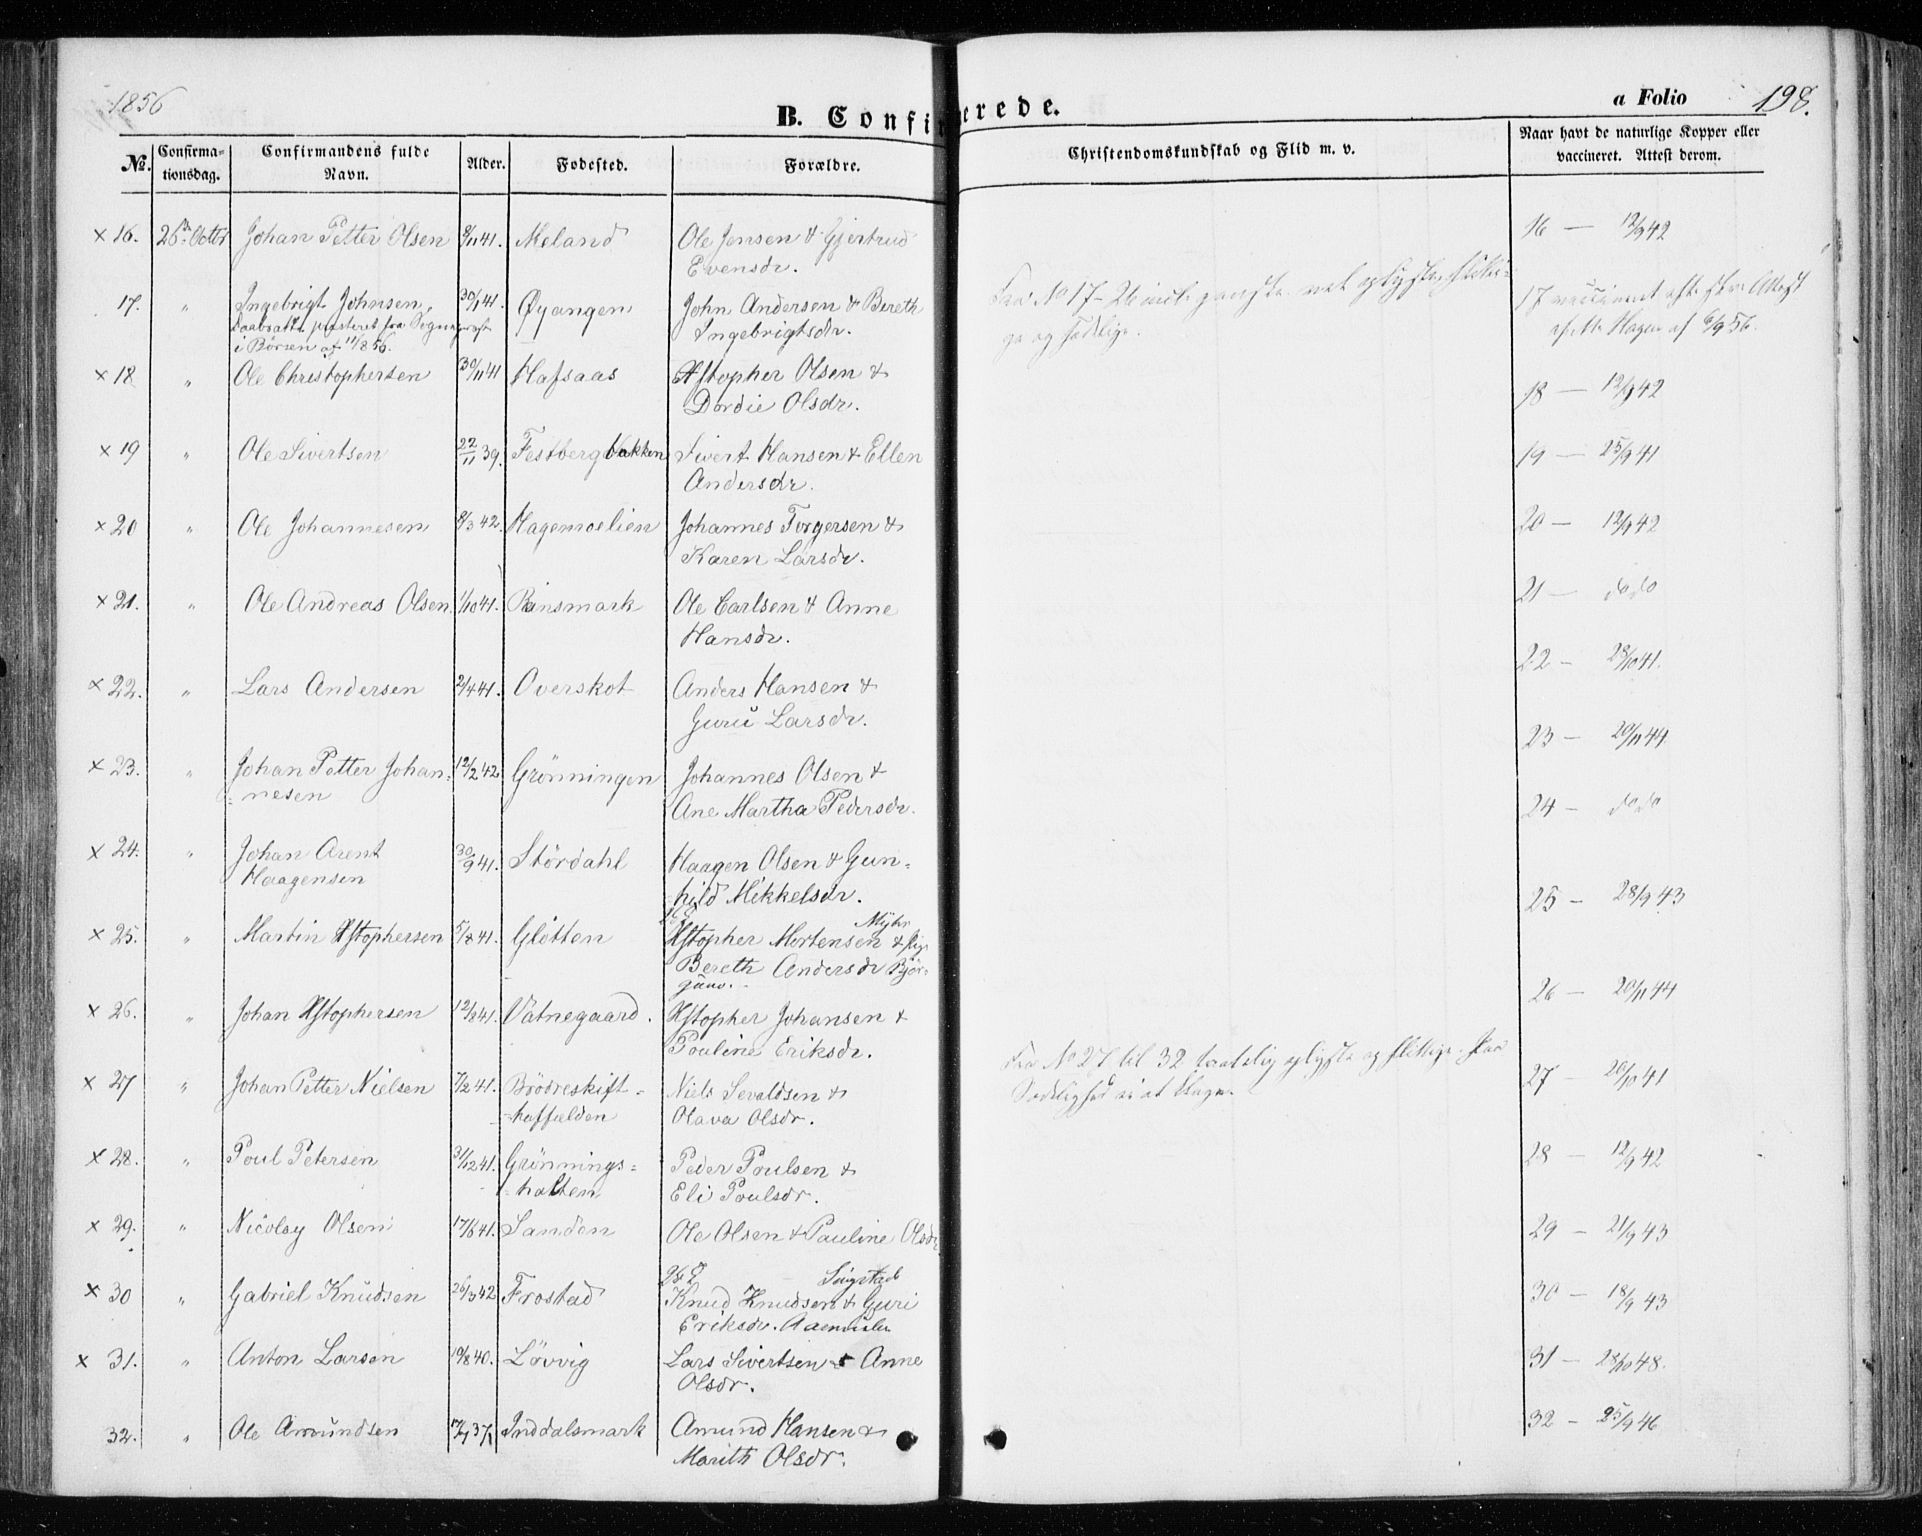 1856
B. Confirmerede.
a Folio 198.
No.
Confirma-
tionsdag.
Confirmandens fulde
Navn.
Alder.
Fodested.
Forældre.
Christendomskundskab og Flid m. v.
Naar havt de naturlige Kopper eller
vaccineret. Attest derom.
× 16. 26de Octbr Johan Petter Olsen 8/11 41. Meland Ole Jensen & Gjertrud
Evensdr.
16 — 12/9 42
17. " Ingebrigt Johnsen, 30/1 41. Øyangen John Andersen & Bereth
Daabsatt. præsteret fra Sognepræst
Ingebrigtsdr.
i Börsen af 11/8 56.
Fra No 17 - 26 incl. ganske vel oplyste, flitti-
ge og sædelige.
17 vaccineret efter Attest
af Hagen af 6/9 56.
× 18 " Ole Christophersen 30/11 41 Hafsaas Xstopher Olsen &
Dordie Olsdr.
18 — 12/9 42
× 19 " Ole Sivertsen 22/11 39. Festbergbakken Sivert Hansen & Ellen
Andersdr.
19 — 25/9 41
× 20 " Ole Johannesen 8/3 42. Hagemoelien Johannes Torgersen &
Karen Larsdr.
20 — 12/9 42
× 21. " Ole Andreas Olsen 1/10 41. Rinsmark Ole Carlsen & Anne
Hansdr.
21 — do do
× 22. " Lars Andersen 2/4 41. Overskot Anders Hansen &
Guru Larsdr.
22 — 28/10 41.
× 23. " Johan Petter Johan- 12/2 42 Grönningen Johannes Olsen &
=nesen
Ane Martha Pedersdr.
23 — 20/11 44
× 24. " Johan Arent 30/9 41. Stördahl Haagen Olsen & Gun-
Haagensen
hild Mikkelsdr.
24 — do do
× 25. " Martin Xstophersen 5/8 41. Glötten Xstopher Mortensen Myhr & pige
Bereth Andersdr Björ-
gaus.
25 — 28/9 43
× 26. " Johan Xstophersen 12/8 41. Vatnegaard. Xstopher Johansen &
Pouline Eriksdr.
26 — 20/11 44
× 27 " Johan Petter Nielsen 7/2 41. Brödreskift-
=haffælden
Niels Sevaldsen &
Olava Olsdr.
Fra No 27 til 32 taalelig oplyste og flittige. Paa
Sædelighed ei at klage.
27 — 20/10 41
× 28. " Poul Petersen 31/12 41. Grönnings=
=holten
Peder Poulsen &
Eli Poulsdr.
28 — 12/9 42
× 29. " Nicolay Olsen 17/6 41. Sanden Ole Olsen & Pauline Olsdr
29 — 21/9 43
× 30 " Gabriel Knudsen 26/3 42 Frostad Knud Knudsen & Guri
Eriksdr.
30 — 18/9 43
× 31. " Anton Larsen 19/8 40. Lövvig Lars Sivertsen & Anne
Olsdr.
31 — 28/10 48.
32. " Ole Amundsen 17/7 37. Inddalsmark Amund Hansen &
Marith Olsdr.
32 — 25/9 46